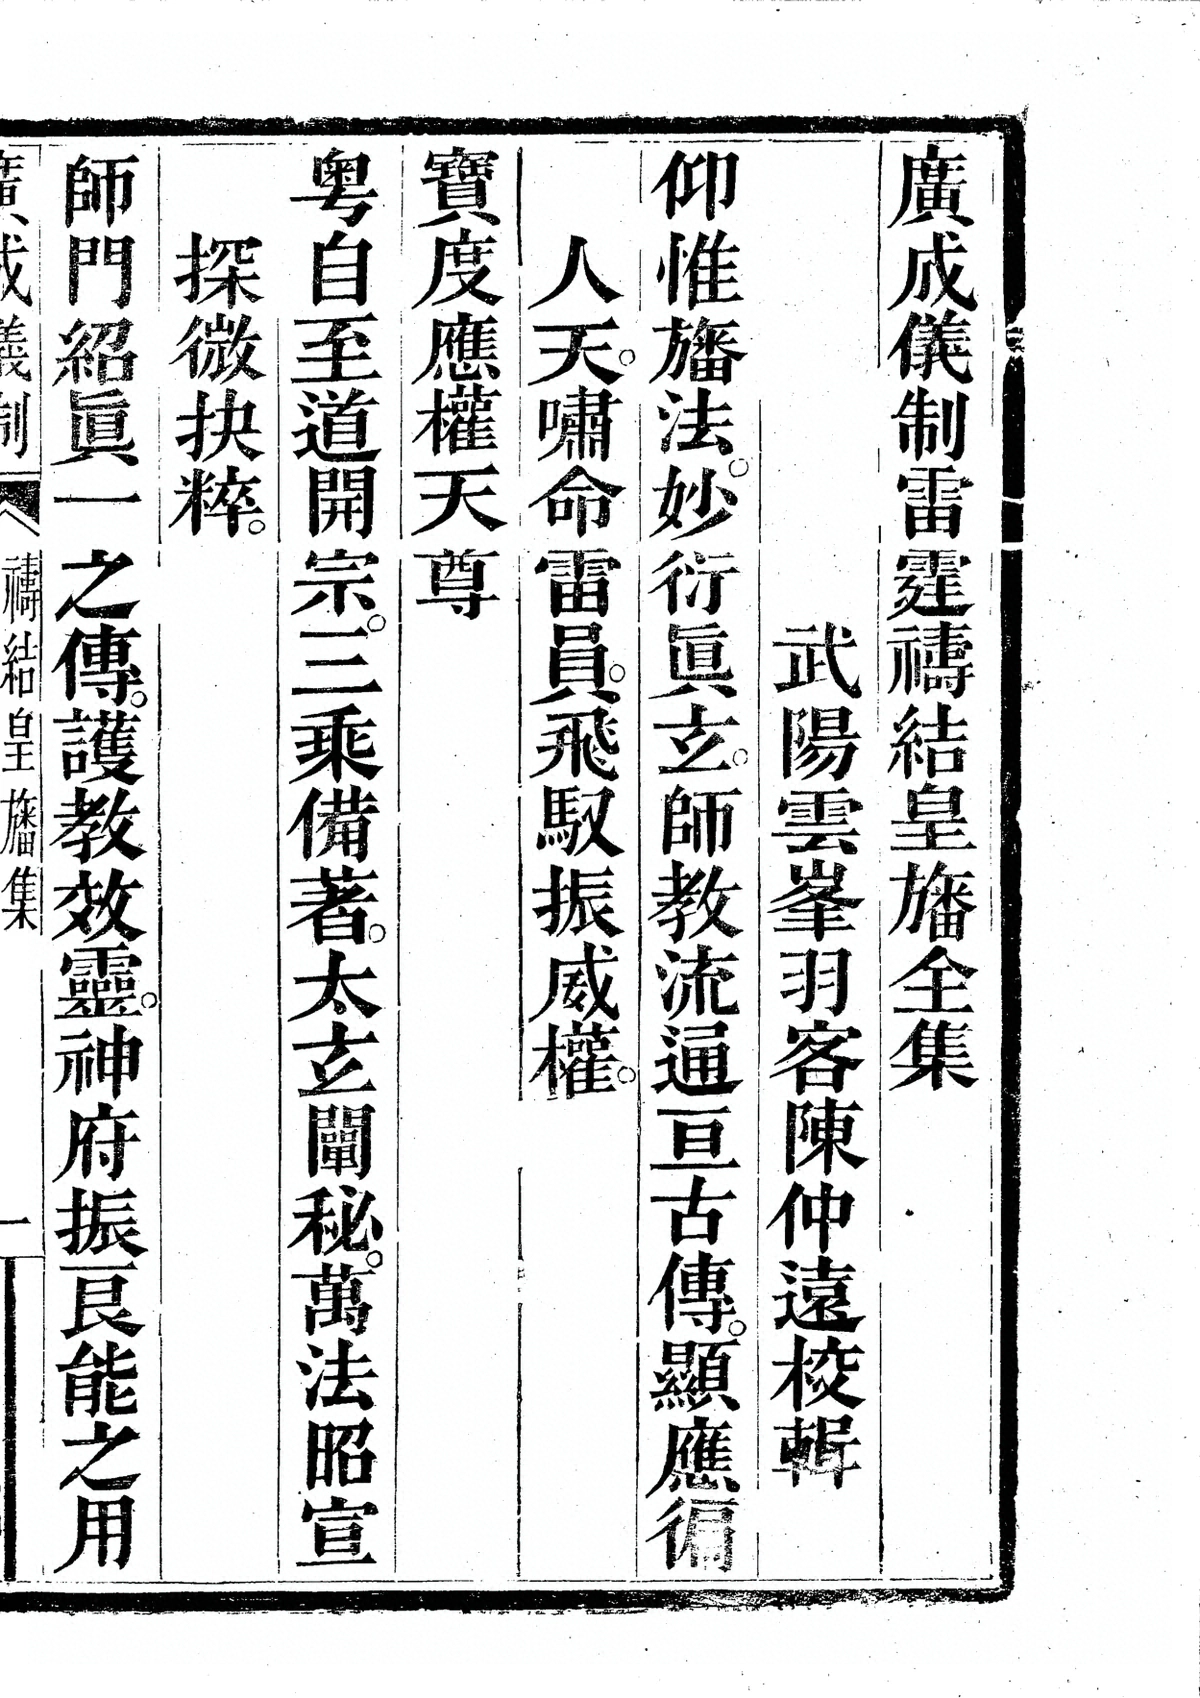 廣成儀制雷霆禱結皇旛全集
武陽雲峯羽客陳仲遠校輯
仰惟旛法。妙衍眞玄。師教流通亘古傳。顯應徧
人天。嘯命雷員。飛馭振威權。
寶度應權天尊
粤自至道開宗。三乘備著。太玄闡秘。萬法昭宣
探微抉粹。
師門紹眞一之傳。護教效靈。神府振良能之用
廣成儀制
禱結皇旛集
一